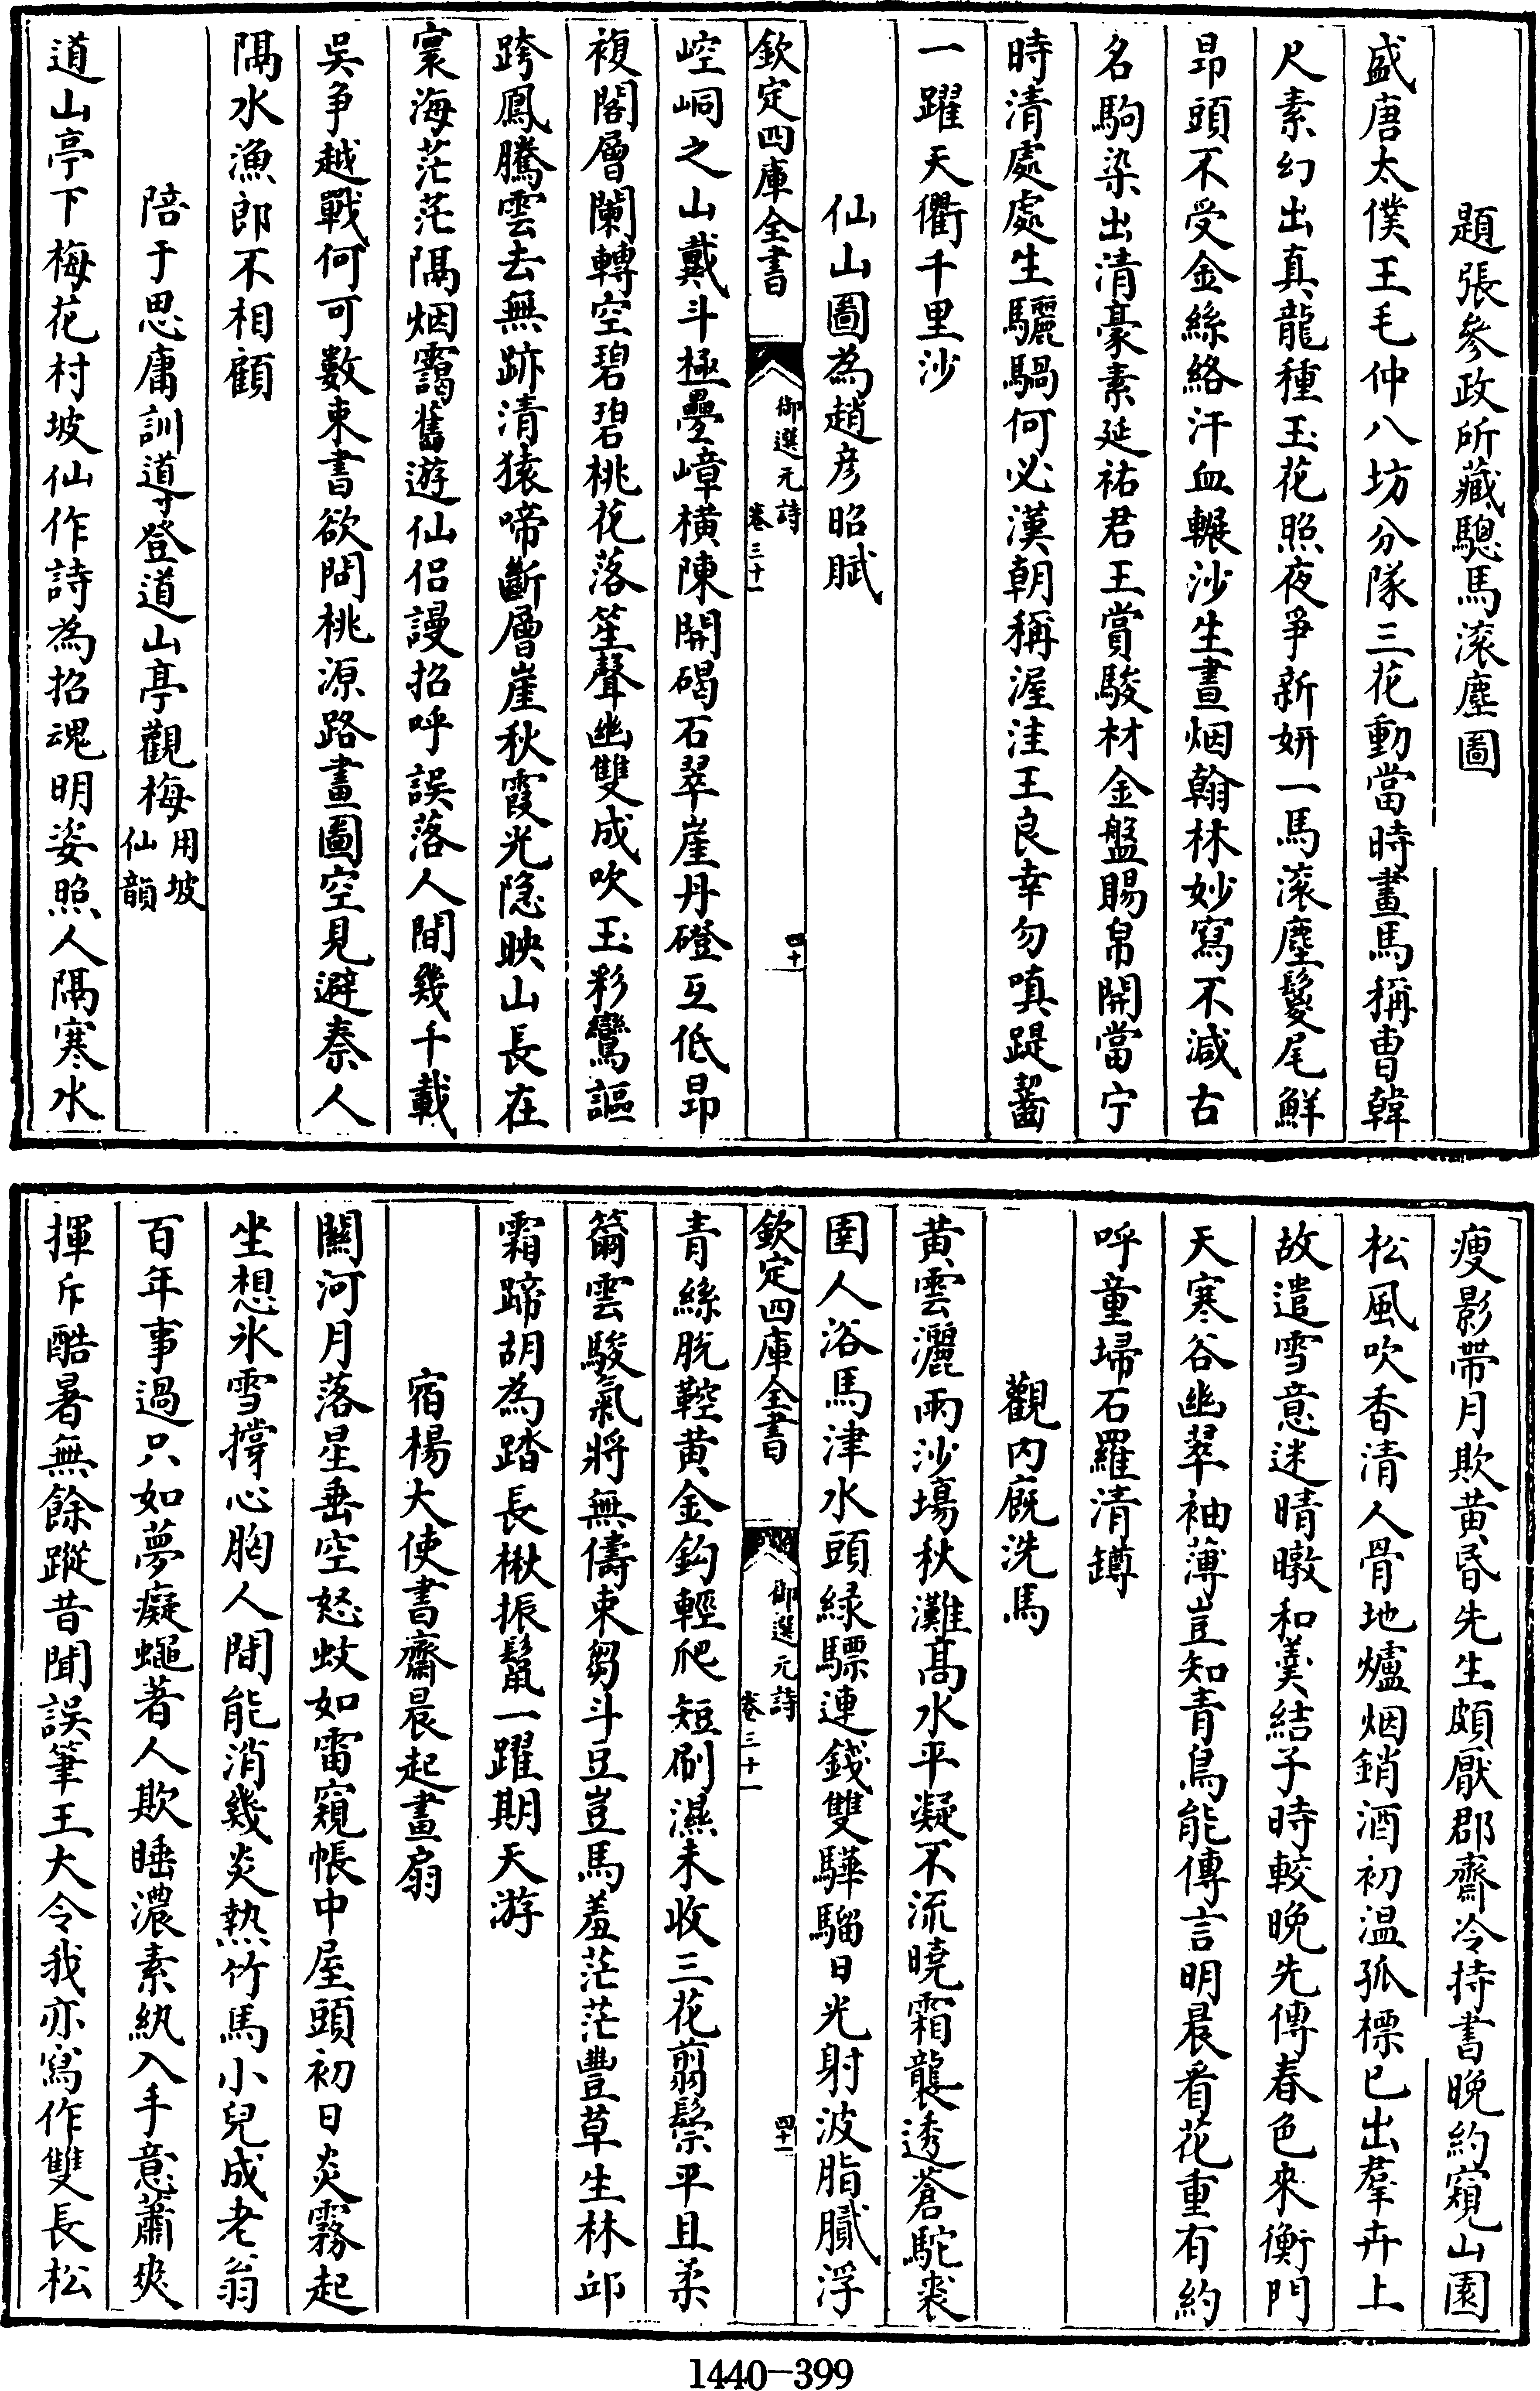 題張參政所藏驄馬滚塵圖
盛唐太僕王毛仲八坊分隊三花動當時畫馬稱曹韓
尺素幻出真龍種玉花照夜爭新妍一馬滚塵鬉尾鮮
昻頭不受金絲絡汗血輾沙生晝烟翰林妙寫不減古
名駒染出清豪素延祐君王賞駿材金盤賜帛開當宁
時清處處生驪騧何必漢朝稱渥洼王良幸勿嗔踶齧
一躍天衢千里沙
仙山圖為趙彦昭賦
欽定四庫全書
御選元詩
卷三十一
四十
崆峒之山戴斗極疊嶂橫陳開碣石翠崖丹磴互低昻
複閣層闌轉空碧碧桃花落笙聲幽雙成吹玉彩鸞謳
跨鳳騰雲去無跡清猿啼斷層崖秋霞光隐映山長在
寰海茫茫隔烟靄舊遊仙侣謾招呼誤落人間幾千載
吳争越戰何可數東書欲問桃源路畫圖空見避秦人
隔水漁郎不相顧
陪于思庸訓導登道山亭觀梅用坡仙韻
道山亭下梅花村坡仙作詩為招魂明姿照人隔寒水
瘦影帶月欺黄昏先生頗厭郡齋冷持書晚約窺山園
松風吹香清人骨地爐烟銷酒初温孤標已出羣卉上
故遣雪意迷晴暾和羮結子時較晚先傳春色來衡門
天寒谷幽翠袖薄豈知青鳥能傳言明晨看花重有約
呼童埽石羅清罇
觀内廐洗馬
黄雲灑雨沙塲秋灘髙水平凝不流曉霜襲透蒼駝裘
圉人浴馬津水頭緑驃連錢雙驊騮日光射波脂膩浮
欽定四庫全書
御選元詩
卷三十一
四十一
青絲脱鞚黄金鈎輕爬短刷濕未收三花翦鬃平且柔
籋雲駿氣將無儔束芻斗豆豈馬羞茫茫豐草生林邱
霜蹄胡為踏長楸振鬛一躍期天游
宿楊大使書齋晨起畫扇
關河月落星垂空怒蚊如雷窺帳中屋頭初日炎霧起
坐想氷雪撐心胸人間能消幾炎熱竹馬小兒成老翁
百年事過只如夢癡蠅著人欺睡濃素紈入手意蕭爽
揮斥酷暑無餘蹤昔聞誤筆王大令我亦寫作雙長松
1440-399